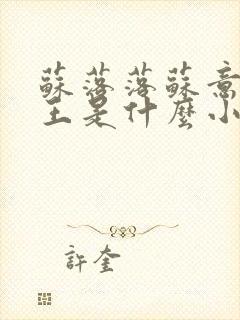 蘇落落蘇意
王是什麼小
許奎